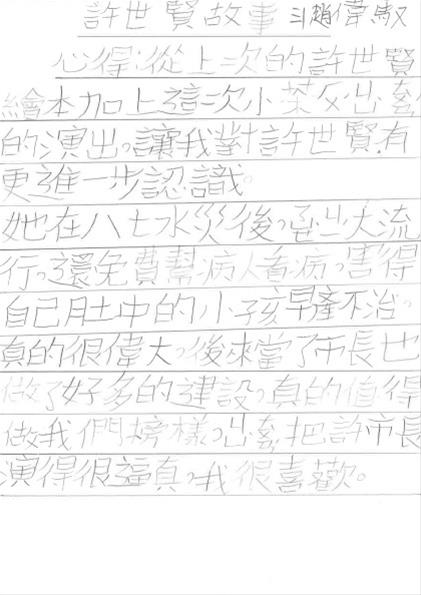 許世賢故事 趙偉馭
心得:從上次的許世賢
繪本加上這次小茶反出劇
的演出。讓我對許世賢有
更進一步認識。
她在八七水災後,巫出大流
行,還免費幫病人看病,害得
自己肚中的小孩早產不治。
真的很偉大,後來當了市長也
做了好多的建設,真的值得
做我們榜樣,出劇把許市長
演得很逼真,我很喜歡。